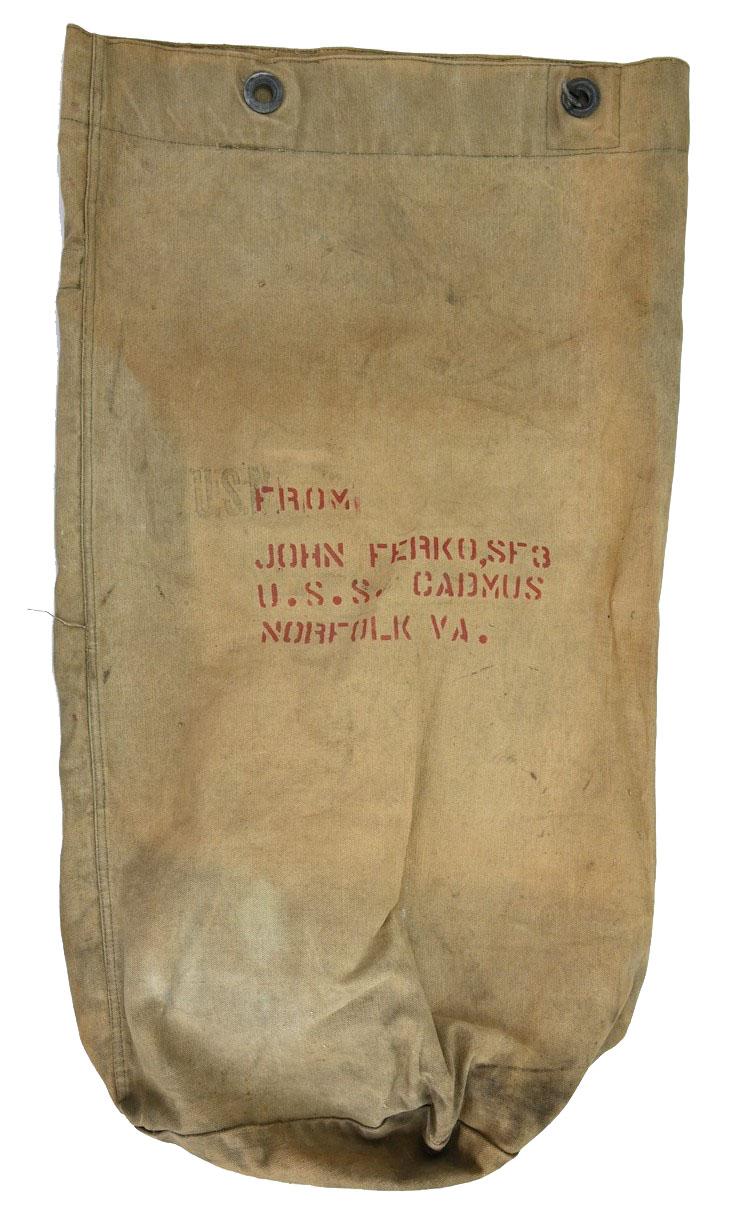 FROM
JOHN FERKO,SF3
U.S.S. CADMUS
NORFOLK VA.